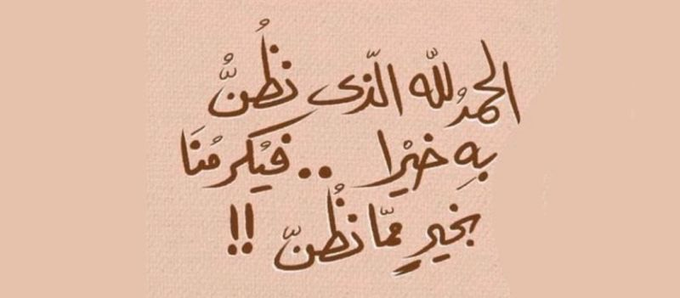 الحمدُ للّه الّذى نظُنُّ
بِهِ خيْرا .. فيُكرمُنَا
بخيرٍ ممّا نظُنّ !!